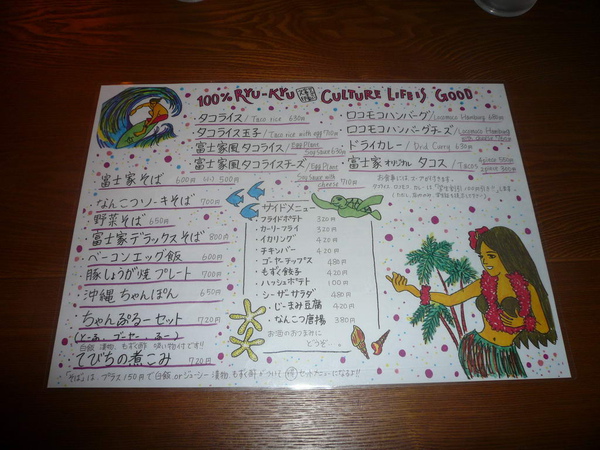 100% RYU-KYU CULTURE LIFE IS GOOD
・タコライス / Taco rice 630円
・タコライス玉子 / Taco rice with egg 710円
・富士家風タコライス / Egg Plant Soy Sauce 630円
・富士家風タコライスチーズ / Egg Plant Soy Sauce with cheese 710円
・ロコモコハンバーグ / Locomoco Hamburg 680円
・ロコモコハンバーグチーズ / Locomoco Hamburg
・ドライカレー / Dried Curry 630円
・富士家オリジナルタコス / Tacos
・富士家そば 600円 (小) 500円
・なんこつソーキそば 700円
・野菜そば 650円
・富士家デラックスそば 800円
・ベーコンエッグ飯 600円
・豚しょうが焼プレート 700円
・沖縄ちゃんぽん 650円
・ちゃんぷるーセット 720円
(とーふ、ゴーヤー、ふー)
てびちの煮こみ 720円
サイドメニュー
フライドポテト 320円
・カーリーフライ 320円
・イカリング 420円
・チキンバー 420円
・ゴーヤーチップス 480円
・もずく餃子 420円
・ハッシュポテト 100円
・シーザーサラダ 480円
・じーまみ豆腐 420円
・なんこつ唐揚 380円
お酒のおつまみに
どうぞ
「そば」は、プラス150円で白飯 orジューシー